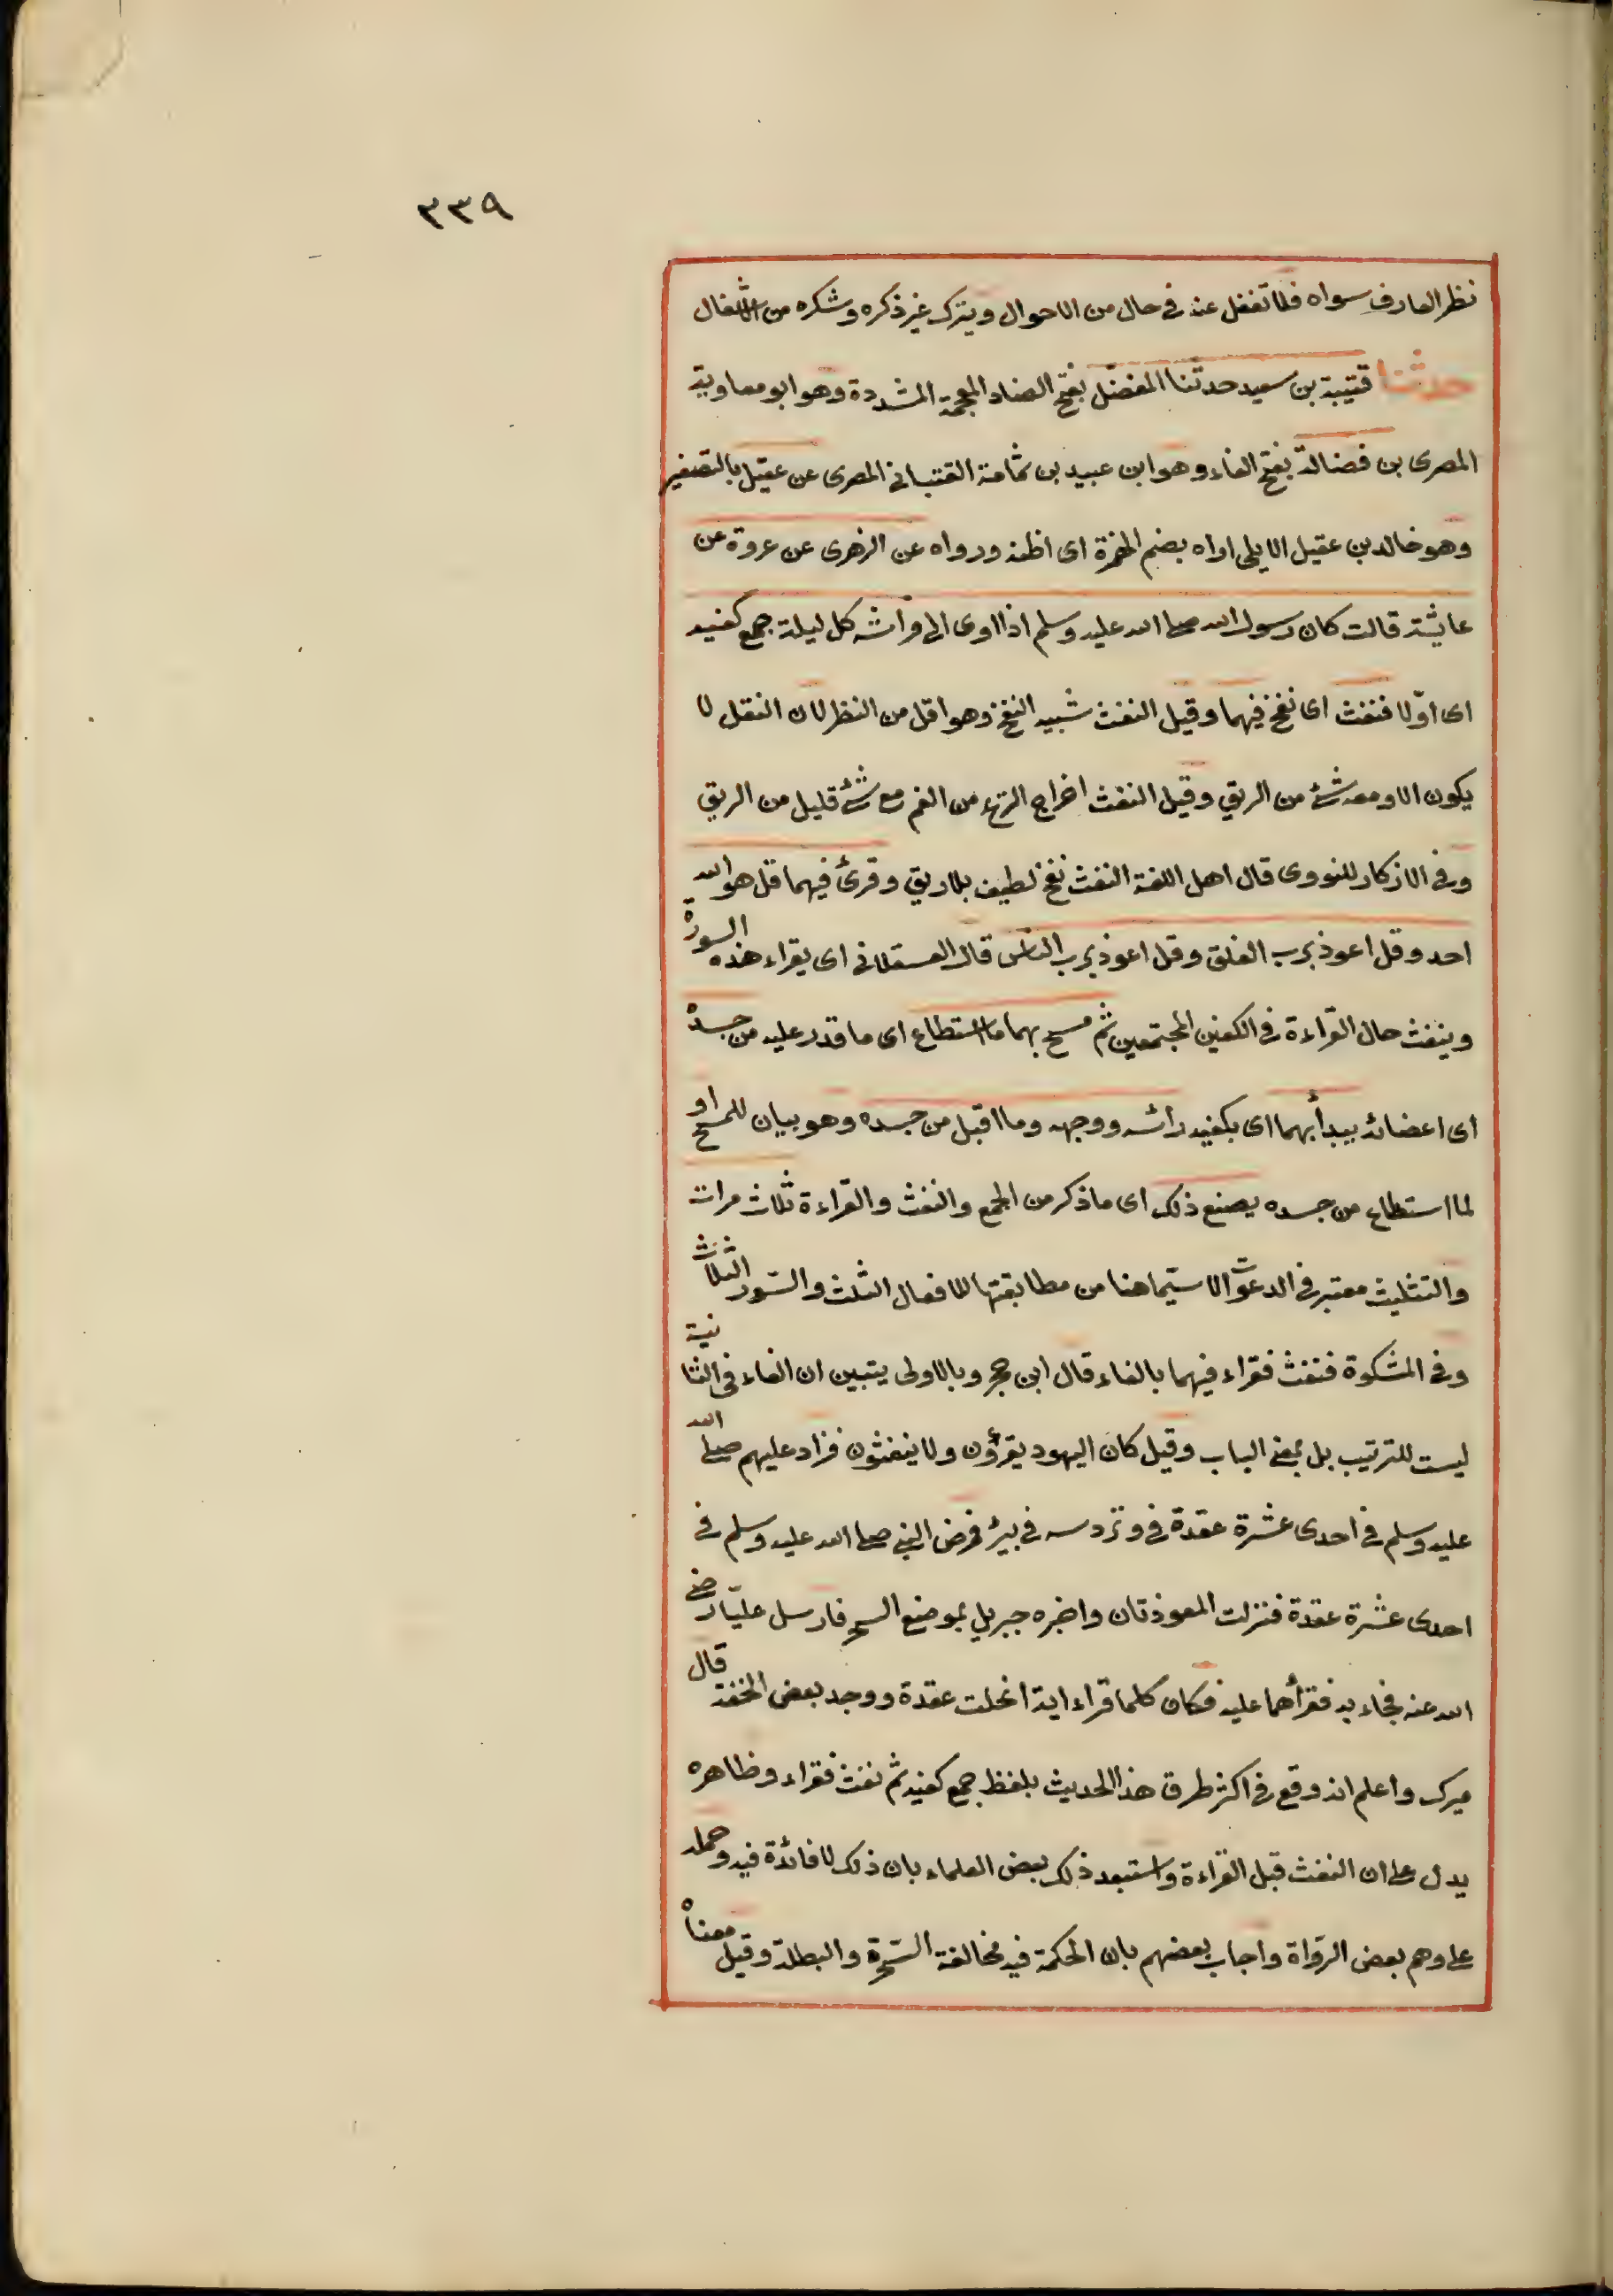 ٣٣٩
نظر العارف سواه فلا تغفل عنه فى حال من الاحوال ويترك غير ذكره وشكره من الاشغال
حدثنا قتيبة بن سعيد حدثنا المفضّل بفتح الضاد المعجمة المشددة وهو ابو معاوية
المصرى بن فضالة بفتح الفاء وهو ابن عبيد بن ثمامة القتبانى المصرى عن عقيل بالتصغير
وهو خالد بن عقيل الايلى اراه بضم الهمزة اى اظنه ورواه عن الزهرى عن عروة عن
عايشة قالت كان رسول الله صلى الله عليه وسلم اذا اوى الى فراشه كل ليلة جمع كفيه
اى اوّلا فنفث اى نفخ فيهما وقيل النفث شبيه النفخ وهو اقل من النظر لان النفل لا
يكون الا ومعه شئ من الريق وقيل النفث اخراج الريح من الفم مع شئ قليل من الريق
وفى الاذكار للنووى قال اهل اللغة النفث نفخ لطيف بلا ريق وقرئ فيهما قل هو الله
احد وقل اعوذ برب الفلق وقل اعوذ برب الناس قال العسقلانى اى يقراء هذه السورة
وينفث حال القراءة فى الكفين المجتمعين ثم مسح بهما ما استطاع اى ما قدر عليه من جسده
اى اعضائه يبدأ بهما اى بكفيه رأسه ووجهه وما اقبل من جسده وهو بيان للمسح او
لما استطاع من جسده يصنع ذلك اى ما ذكر من الجمع والنفث والقراءة ثلاث مرات
والتثليث معتبر فى الدعوات لا سيّما هنا من مطابقتها للافعال الثلث والسّور الثلاث
وفى المشكوة فنفث فقراء فيهما بالفاء قال ابن حجر وبالاولى يتبين ان الفاء فى الثانية
ليست للترتيب بل بمعنى الباب وقيل كان اليهود يقرؤن ولا ينفثون فزاد عليهم صلى الله
عليه وسلم فى احدى عشرة عقدة فى وتر دسه فى بئر فمرض النبى صلى الله عليه وسلم فى
احدى عشرة عقدة فنزلت المعوذتان واخبره جبريل بموضع السحر فارسل عليّا رضى
الله عنه فجاء به فقرأهما عليه فكان كلما قراء اية انحلت عقدة ووجد بعض الخفة قال
ميرك واعلم انه وقع فى اكثر طرق هذا الحديث بلفظ جمع كفيه ثم نفث فقراء وظاهره
يدل على ان النفث قبل القراءة واستبعد ذلك بعض العلماء بان ذلك لا فائدة فيه وحمله
على وهم بعض الرّواة واجاب بعضهم بان الحكمة فيه مخالفة السّحرة والبطلة وقيل معناه